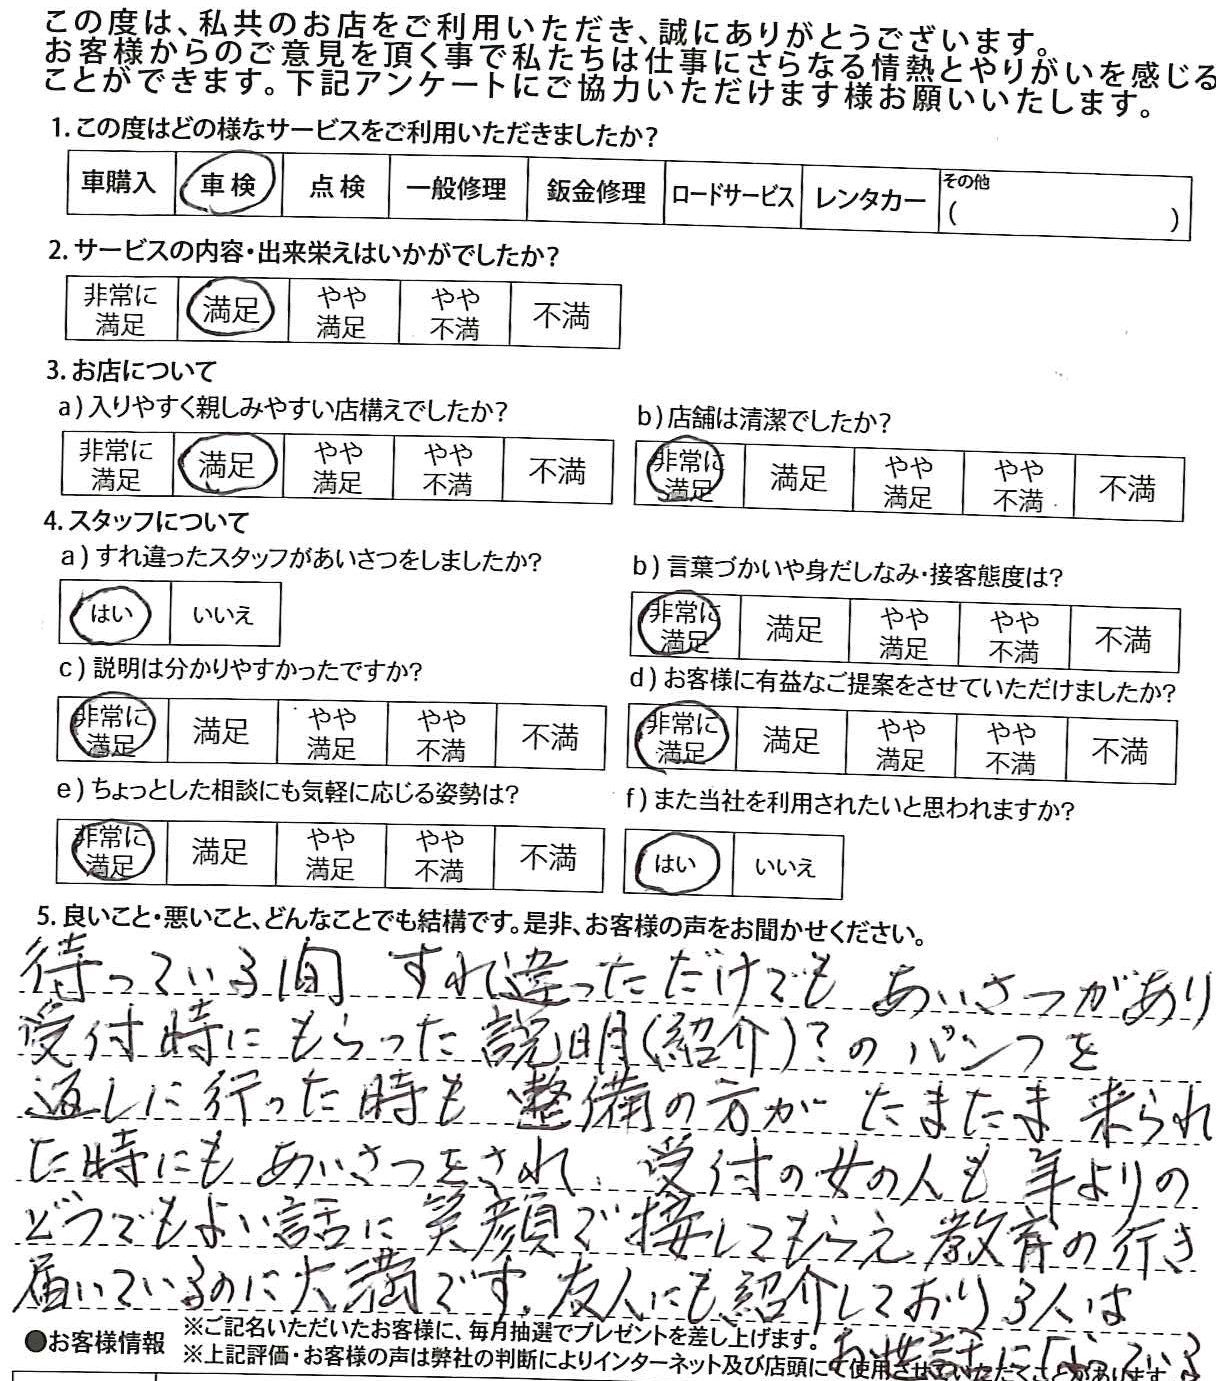 この度は、私共のお店をご利用いただき、誠にありがとうございます。
お客様からのご意見を頂く事で私たちは仕事にさらなる情熱とやりがいを感じる
ことができます。下記アンケートにご協力いただけます様お願いいたします。
1.この度はどの様なサービスをご利用いただきましたか?
車購入 車検 点検 一般修理 鈑金修理 ロードサービス レンタカー その他 ( )
2.サービスの内容・出来栄えはいかがでしたか?
非常に満足 満足 やや満足 やや不満 不満
3.お店について
a)入りやすく親しみやすい店構えでしたか?
非常に満足 満足 やや満足 やや不満 不満
b)店舗は清潔でしたか?
非常に満足 満足 やや満足 やや不満 不満
4.スタッフについて
a)すれ違ったスタッフがあいさつをしましたか?
はい いいえ
b)言葉づかいや身だしなみ・接客態度は?
非常に満足 満足 やや満足 やや不満 不満
c)説明は分かりやすかったですか?
非常に満足 満足 やや満足 やや不満 不満
d)お客様に有益なご提案をさせていただけましたか?
非常に満足 満足 やや満足 やや不満 不満
e)ちょっとした相談にも気軽に応じる姿勢は?
非常に満足 満足 やや満足 やや不満 不満
f)また当社を利用されたいと思われますか?
はい いいえ
5.良いこと・悪いこと、どんなことでも結構です。是非、お客様の声をお聞かせください。
待っている間 すれ違っただけでも あいさつがあり
受付時にもらった説明(紹介)?のパンフを
返しに行った時も 整備の方が たまたま来られ
た時にもあいさつをされ、受付の女の人も年よりの
どうでもよい話に笑顔で接してもらえ教育の行き
届いているのに大満です。友人にも紹介しており3人は
お世話になっている
●お客様情報
※ご記名いただいたお客様に、毎月抽選でプレゼントを差し上げます。
※上記評価・お客様の声は弊社の判断によりインターネット及び店頭にて使用させていただくことがあります。